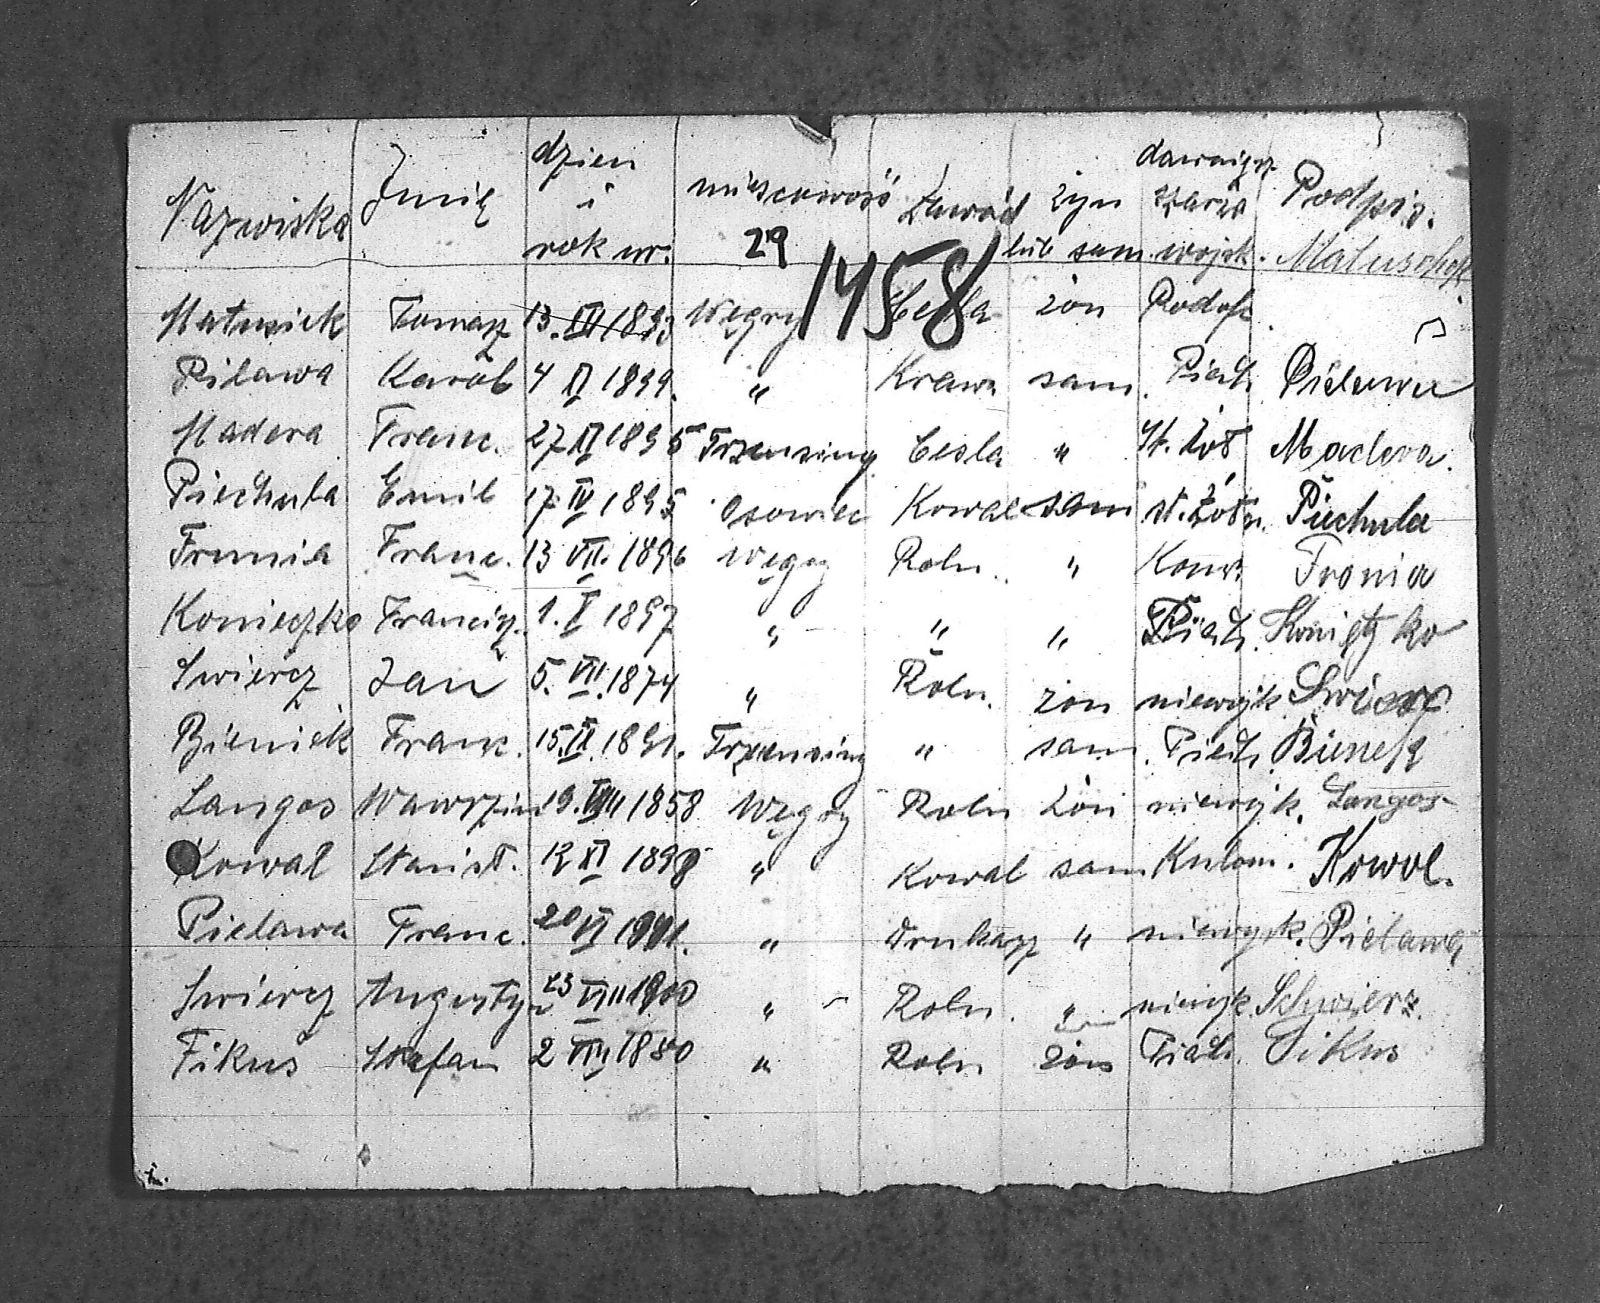 Nazwiska Imię dzien i rok ur. miescowość Zawód żyn lub sam. dawniejsz szarża wojsk. Podpis.
29 1458
Matuschek
Matusiek Tomasz 13. III 1893 Węgry Cesla żon Podof.
Pilawa Karol 4 XI 1899. " Krawc sam. Piech. Pielawa
Madera Franc. 27 XI 1895 Trzensiny Cesla " St. Żoł Madera.
Piechula Emil 17. IV 1895 Osowiec Kowal sam st. Żołn. Piechula
Fronia Franc. 13 VII. 1896 Węgry Roln. " Fronia
Konieczko Francisz. 1. X 1897 " " " Piech. Konietzko
Swiercz Jan 5. VII. 1874 " Roln. żon niewojsk
Bieniek Franc. 15. IX 1891. Trzensiny " sam. Piech. Bienek
Langos Wawrzin. 19. VIII 1858 Węgry Roln żon niewojk. Langos
Kowal Stanisł. 12 XI 1898 " Kowal sam Kulom. Kowol.
Pielawa Franc. 20 VI 1901. " Drukarz " niewojsk. Pielawa
Swiercz Augustyn 23 VIII 1900 " Roln. " niewojk Schwierz.
Fikus Stefan 2 VIII 1880 " Roln żon Piech. Fikus